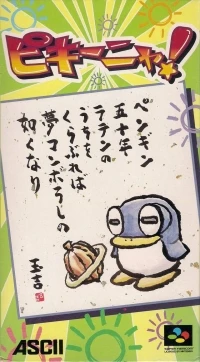 ピキーニャ!
ペンギン
五十年
テテンの
うちを
くらぶれば
夢マンボラしの
如くなり
玉吉
ASCII